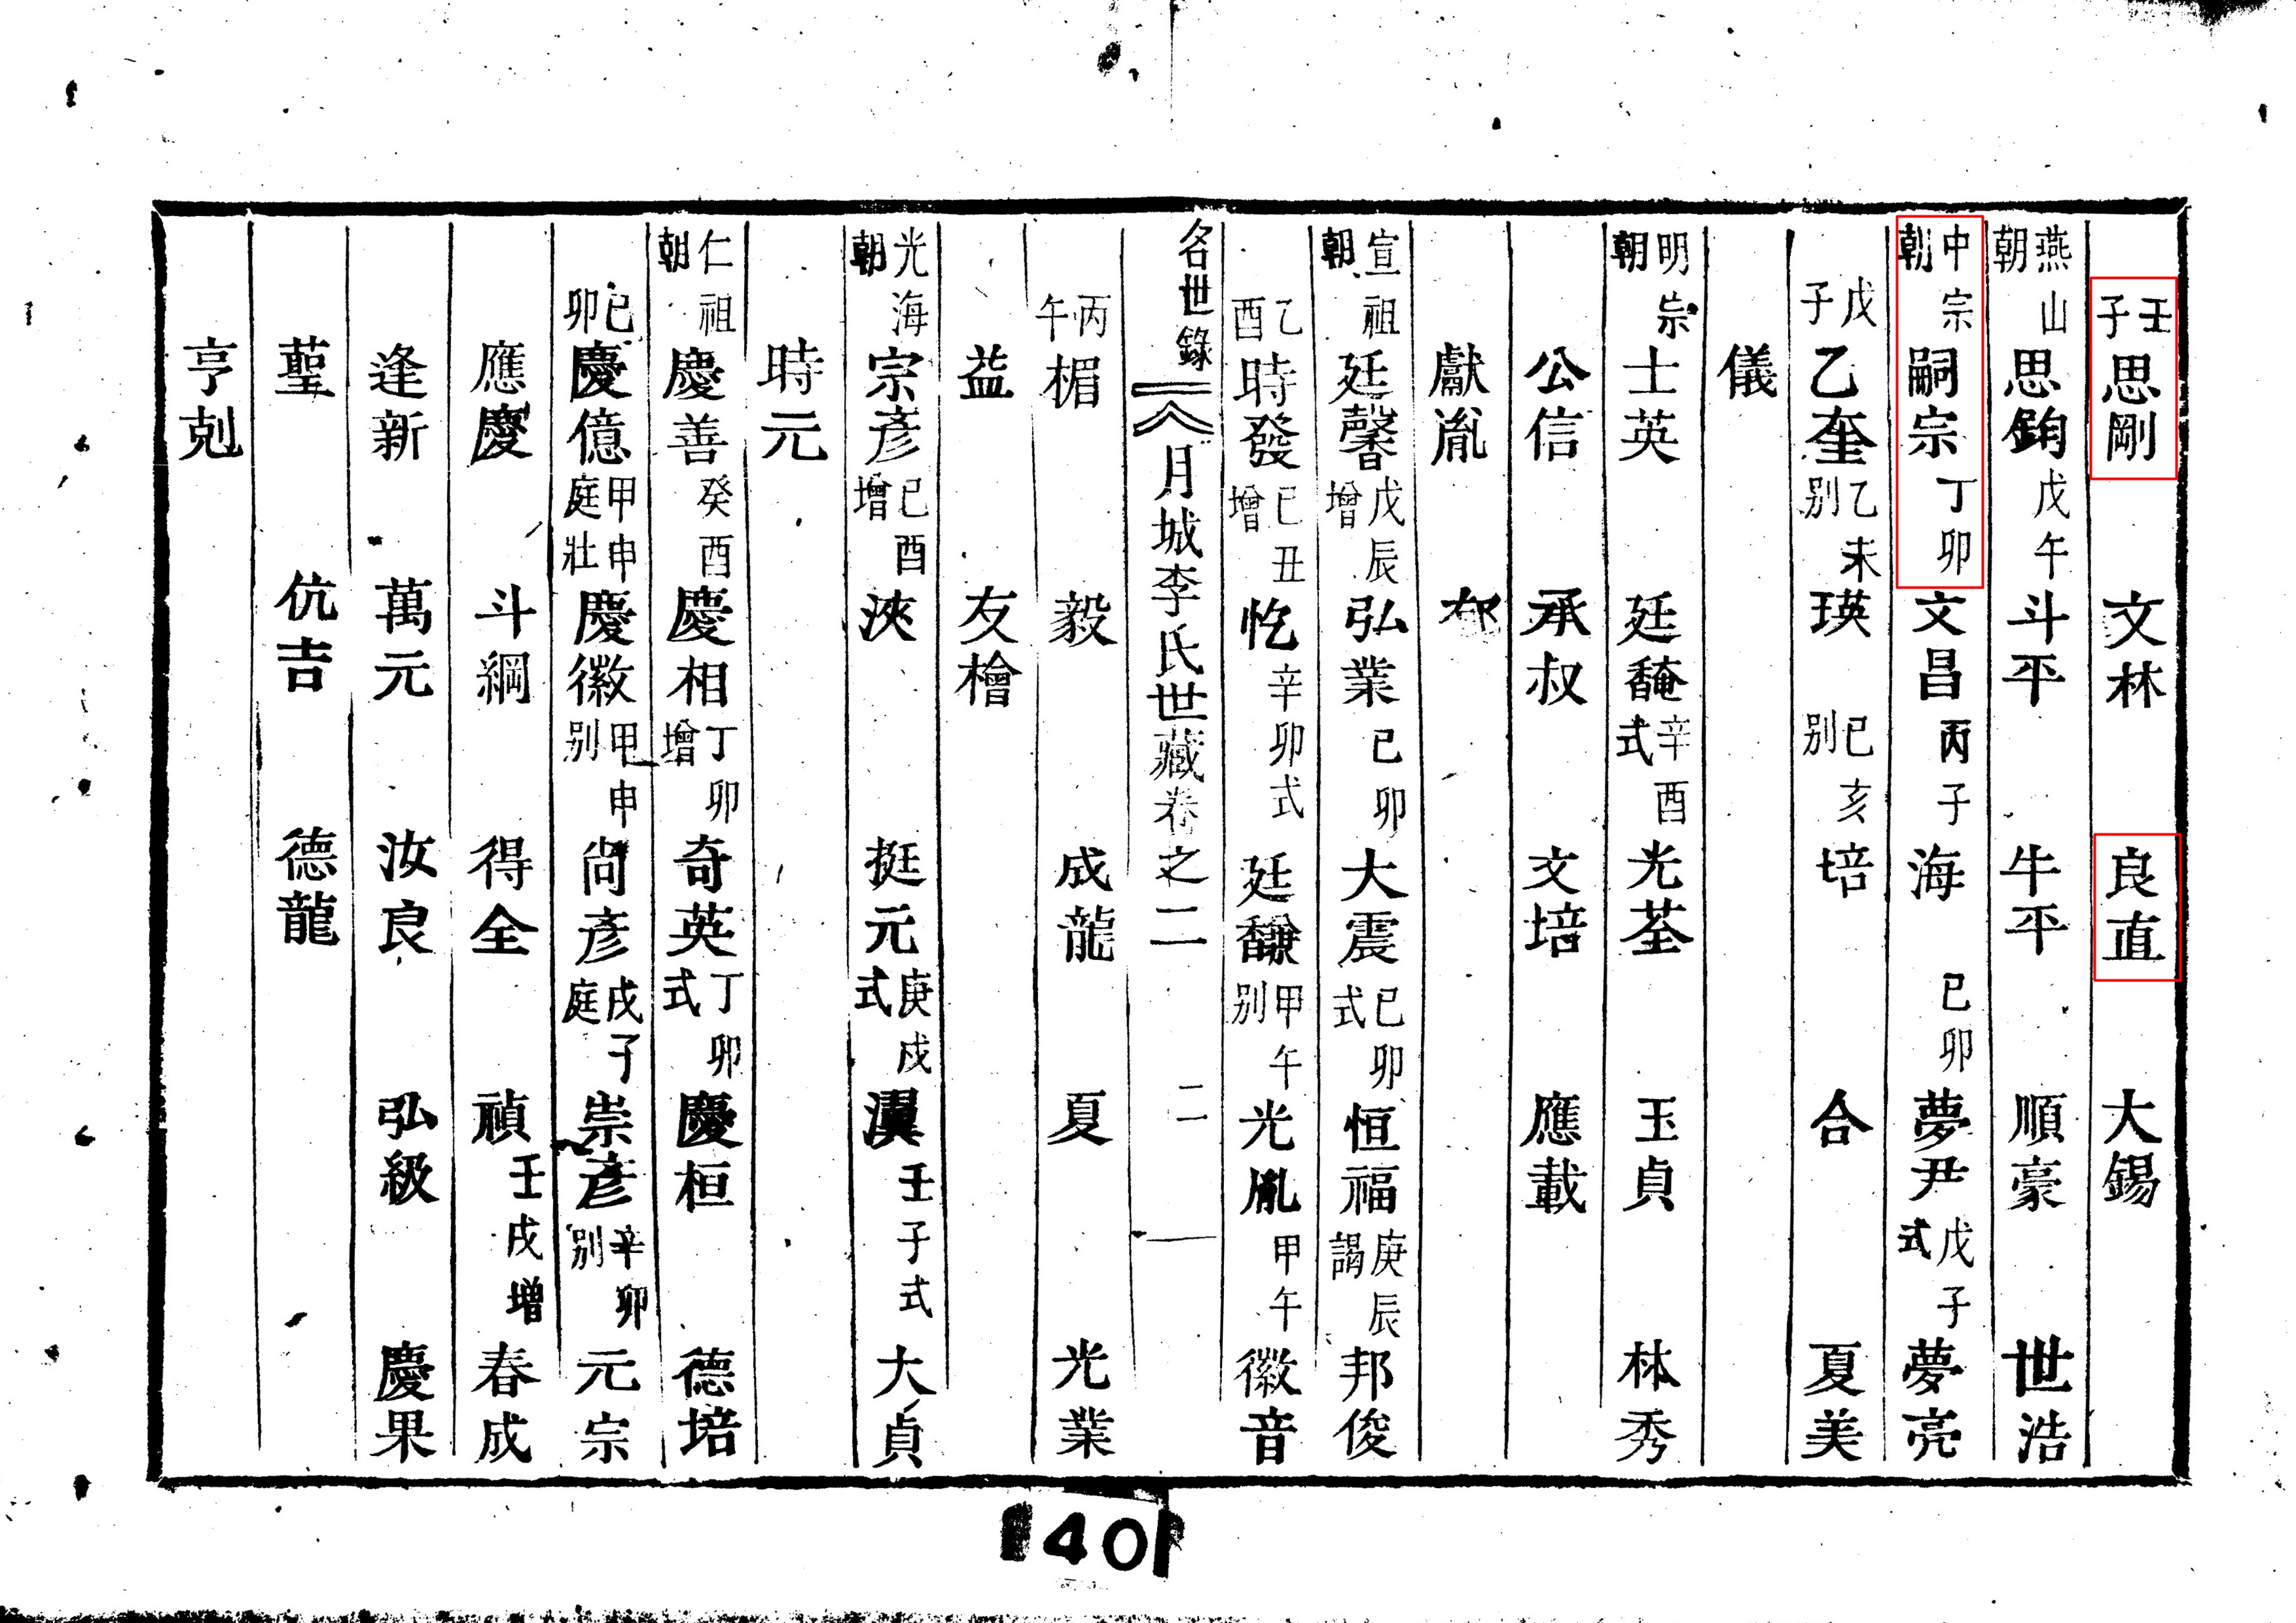 壬子思剛 文林 良直 大錫
燕山朝思鈞戊午 斗平 牛平 順豪 世浩
中宗朝嗣宗丁卯 文昌丙子 海己卯 夢尹戊子式 夢亮
戊子乙奎乙未別 瑛己亥別 培 合 夏美
儀
明宗朝士英 廷馣辛酉式 光荃 玉貞 林秀
公信 承叔 文培 應載
獻胤
宣祖朝廷馨戊辰增 弘業己卯 大震己卯式 恒福庚辰謁 邦俊
乙酉時發己丑增 忔辛卯式 廷馦甲午別 光胤甲午 徽音
名世錄 月城李氏世藏卷之二 二
丙午楣 毅 成龍 夏 光業
益 友檜
光海朝宗彦己酉增 浹 挺元庚戌式 瀷壬子式 大貞
時元
仁祖朝慶善癸酉 慶相丁卯增 奇英丁卯式 慶桓 德培
己卯慶億甲申庭壯 慶徽甲申別 尙彦戊子庭 崇彦辛卯別 元宗
應慶 斗綱 得全 禎壬戌增 春成
逢新 萬元 汝良 弘級 慶果
伉吉 德龍
亨剋
40